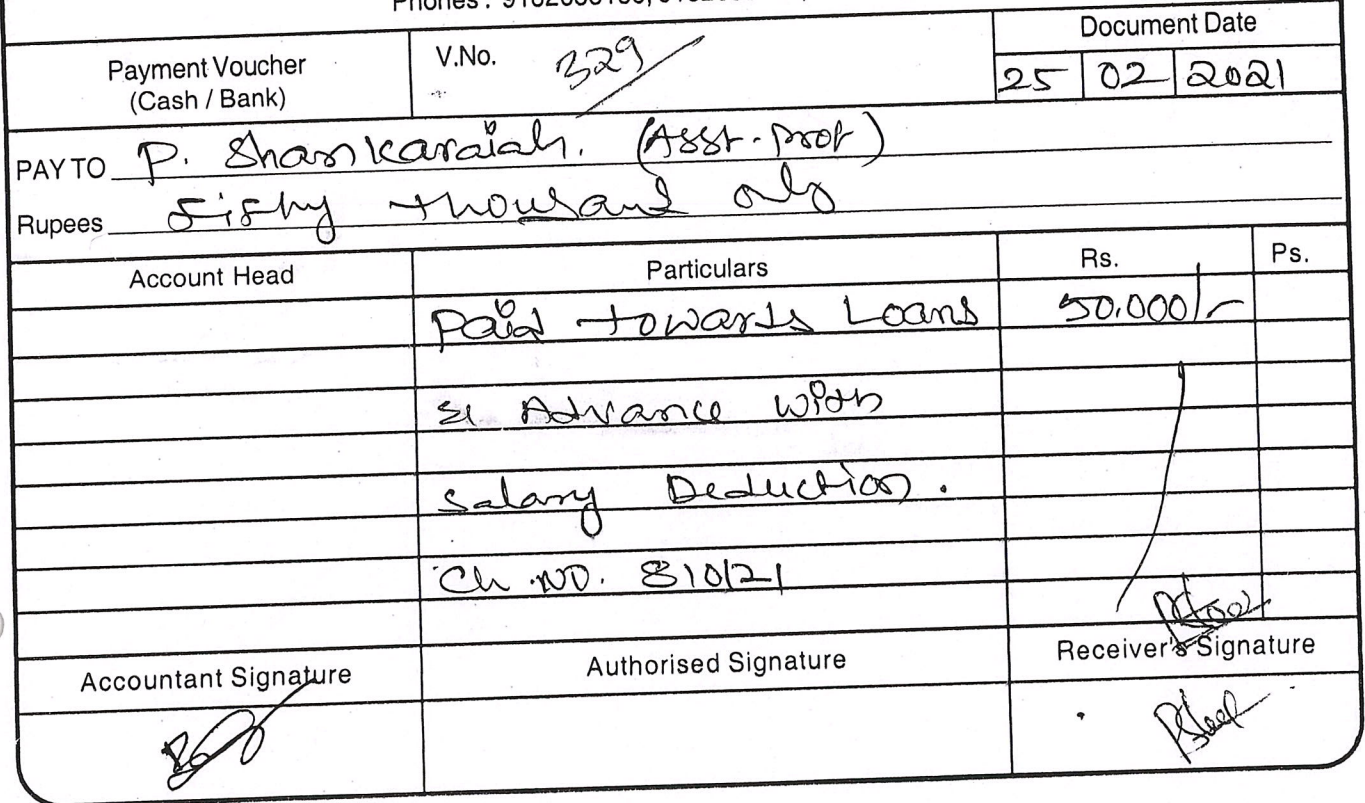 Payment Voucher
(Cash / Bank)
V.No. 329/
Document Date
25 02 2021
PAY TO P. Shankaraiah. (Asst. prof)
Rupees Fifty thousand only
Account Head Particulars Rs. Ps.
Paid towards Loans 50,000/-
& Advance with
Salary Deduction.
Ch. NO. 810121
Accountant Signature Authorised Signature Receiver's Signature